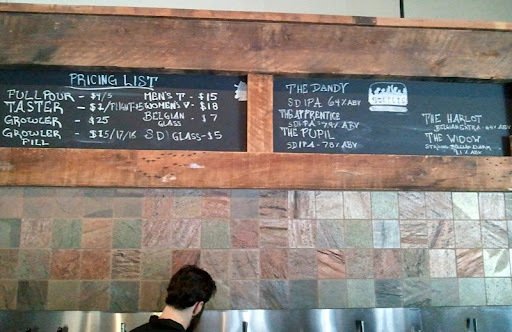 PRICING LIST
FULL POUR - $4/5
TASTER - $2/FLIGHT-$15
GROWLER - $25
GROWLER FILL - $15/17/18
MEN'S T - $15
WOMEN'S V - $18
BELGIAN GLASS - $7
SD GLASS - $5
THE DANDY
SD IPA 6.4% ABV
THE APPRENTICE
SD IPA - 7.4% ABV
THE PUPIL
SD IPA - 7.8% ABV
THE HARLOT
BELGIAN EXTRA
% ABV
THE WIDOW
% ABV